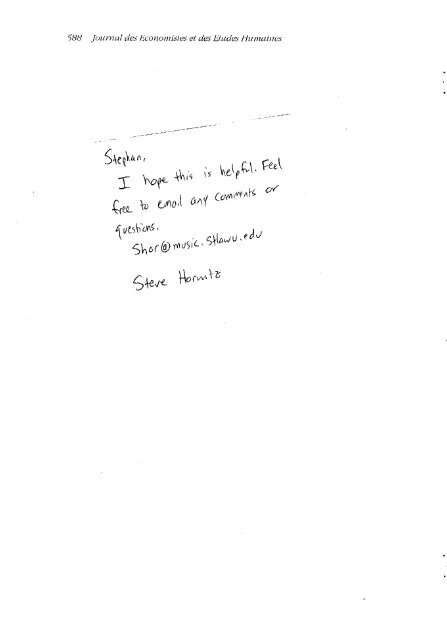 588 Journal des Economistes et des Etudes Humaines
Stephan,
I hope this is helpful. Feel
free to email any comments or
questions.
Shor@music.stlawu.edu
Steve Horwitz